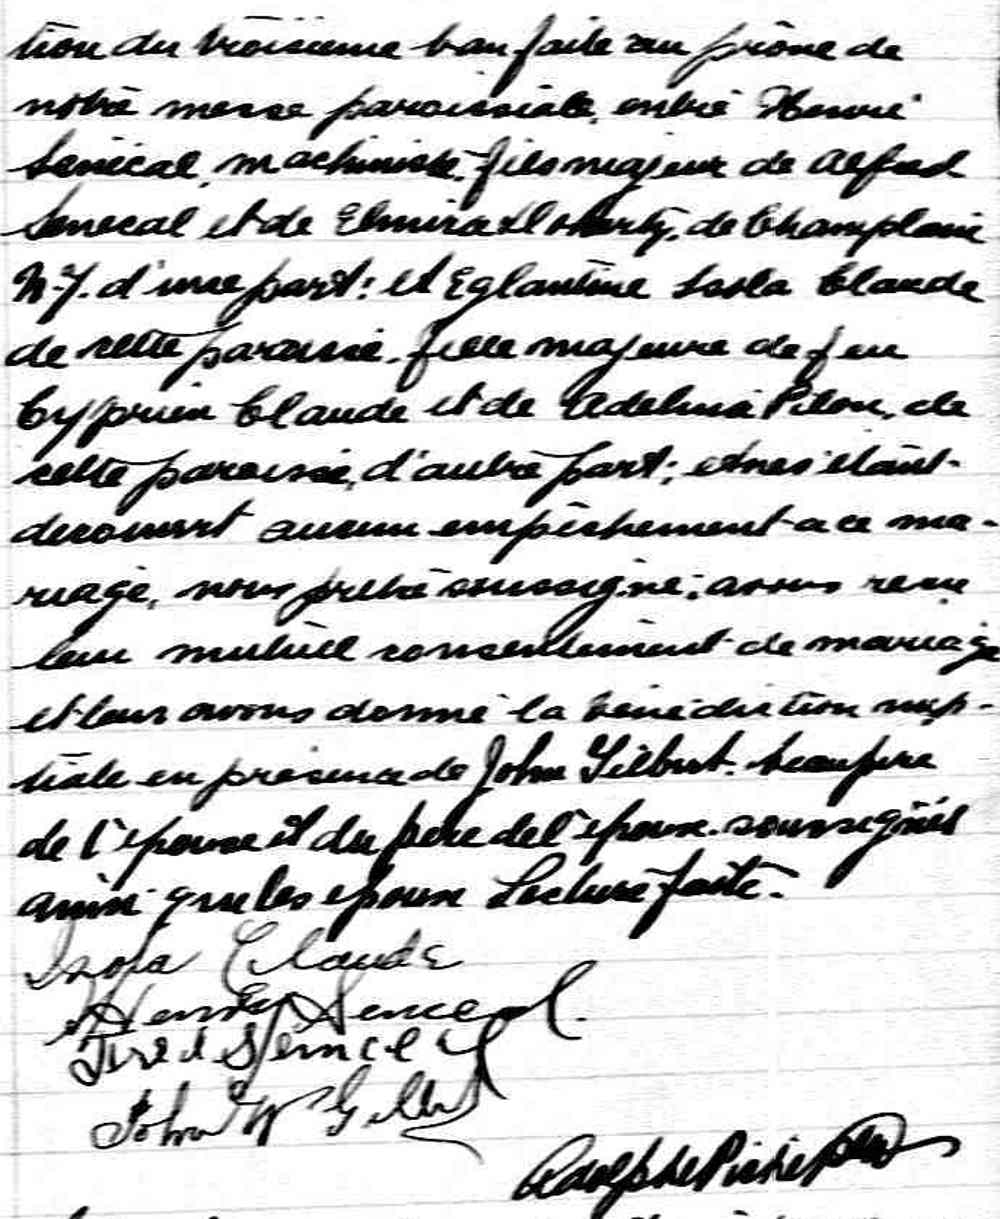 tion du troisième ban faite au prône de
notre messe paroissiale, entre Henri
Senécal, machiniste, fils majeur de Alfred
Senecal et de Elmira Doherty, de Champlain
N.Y. d'une part; et Eglantine Isola Claude
de cette paroisse, fille majeure de feu
Cyprien Claude et de Adelina Pilon, de
cette paroisse, d'autre part; et ne s'étant
decouvert aucun empêchement a ce ma-
riage, nous prêtre soussigné, avons reçu
leur mutuel consentement de mariage
et leur avons donné la bénédiction nup-
tiale en présence de John Gilbert beaupère
de l'épouse et du père de l'époux soussignés
ainsi que les epoux Lecture faite.
Isola Claude
Henry Senecal.
Fred Senecal
John W Gilbert
Adolphe Piché ptre